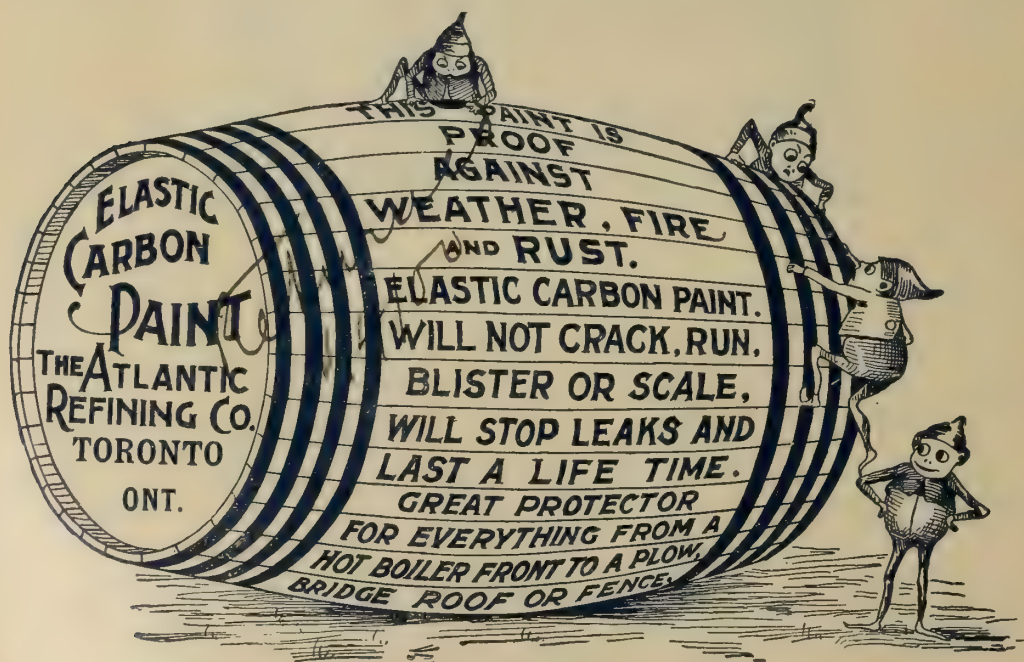 ELASTIC
CARBON
PAINT
THE ATLANTIC
REFINING CO.
TORONTO
ONT.
THIS PAINT IS
PROOF
AGAINST
WEATHER, FIRE
AND RUST.
ELASTIC CARBON PAINT.
WILL NOT CRACK, RUN,
BLISTER OR SCALE,
WILL STOP LEAKS AND
LAST A LIFE TIME.
GREAT PROTECTOR
FOR EVERYTHING FROM A
HOT BOILER FRONT TO A PLOW,
BRIDGE ROOF OR FENCE.